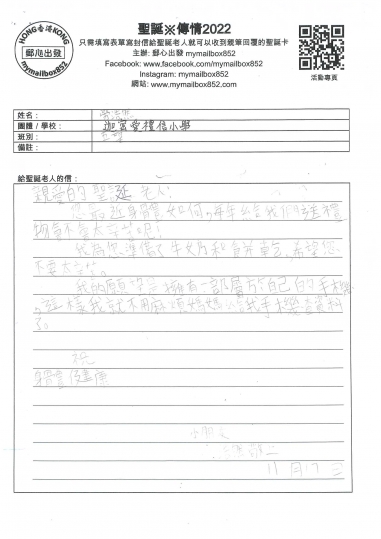 HONG香港KONG
郵心出發
mymailbox852
聖誕※傳情2022
只需填寫表單寫封信給聖誕老人就可以收到親筆回覆的聖誕卡
主辦: 郵心出發 mymailbox852
Facebook: www.facebook.com/mymailbox852
Instagram: mymailbox852
網站: www.mymailbox852.com
活動專頁
姓名：
團體 / 學校： 迦密愛禮信小學
班別：
備註：
給聖誕老人的信：
親愛的聖誕老人:
您最近身體如何,年年給我們送禮
物會不會太辛苦呢!
我為您準備了牛奶和麵包,希望您
不要太辛苦。
我的願望是擁有一部屬於自己的手機
,這樣我就不用麻煩媽媽給我手機查資料
了。
祝
身體健康
小朋友
11月17